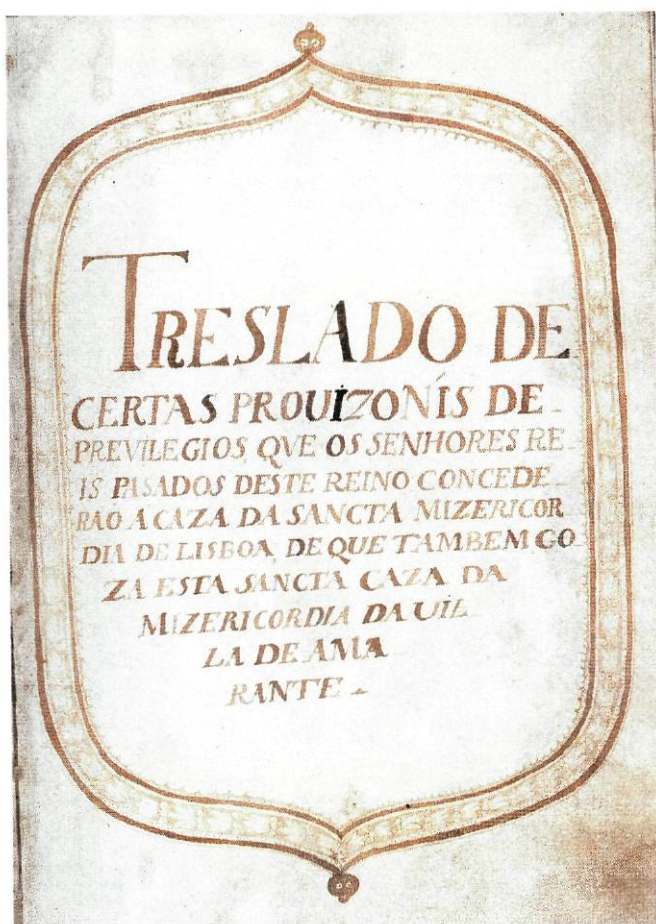 TRESLADO DE
CERTAS PROUIZONIS DE
PREVILEGIOS QVE OS SENHORES RE
IS PASADOS DESTE REINO CONCEDE
RAO A CAZA DA SANCTA MIZERICOR
DIA DE LISBOA, DE QUE TAMBEM GO
ZA ESTA SANCTA CAZA DA
MIZERICORDIA DA UIL
LA DE AMA
RANTE